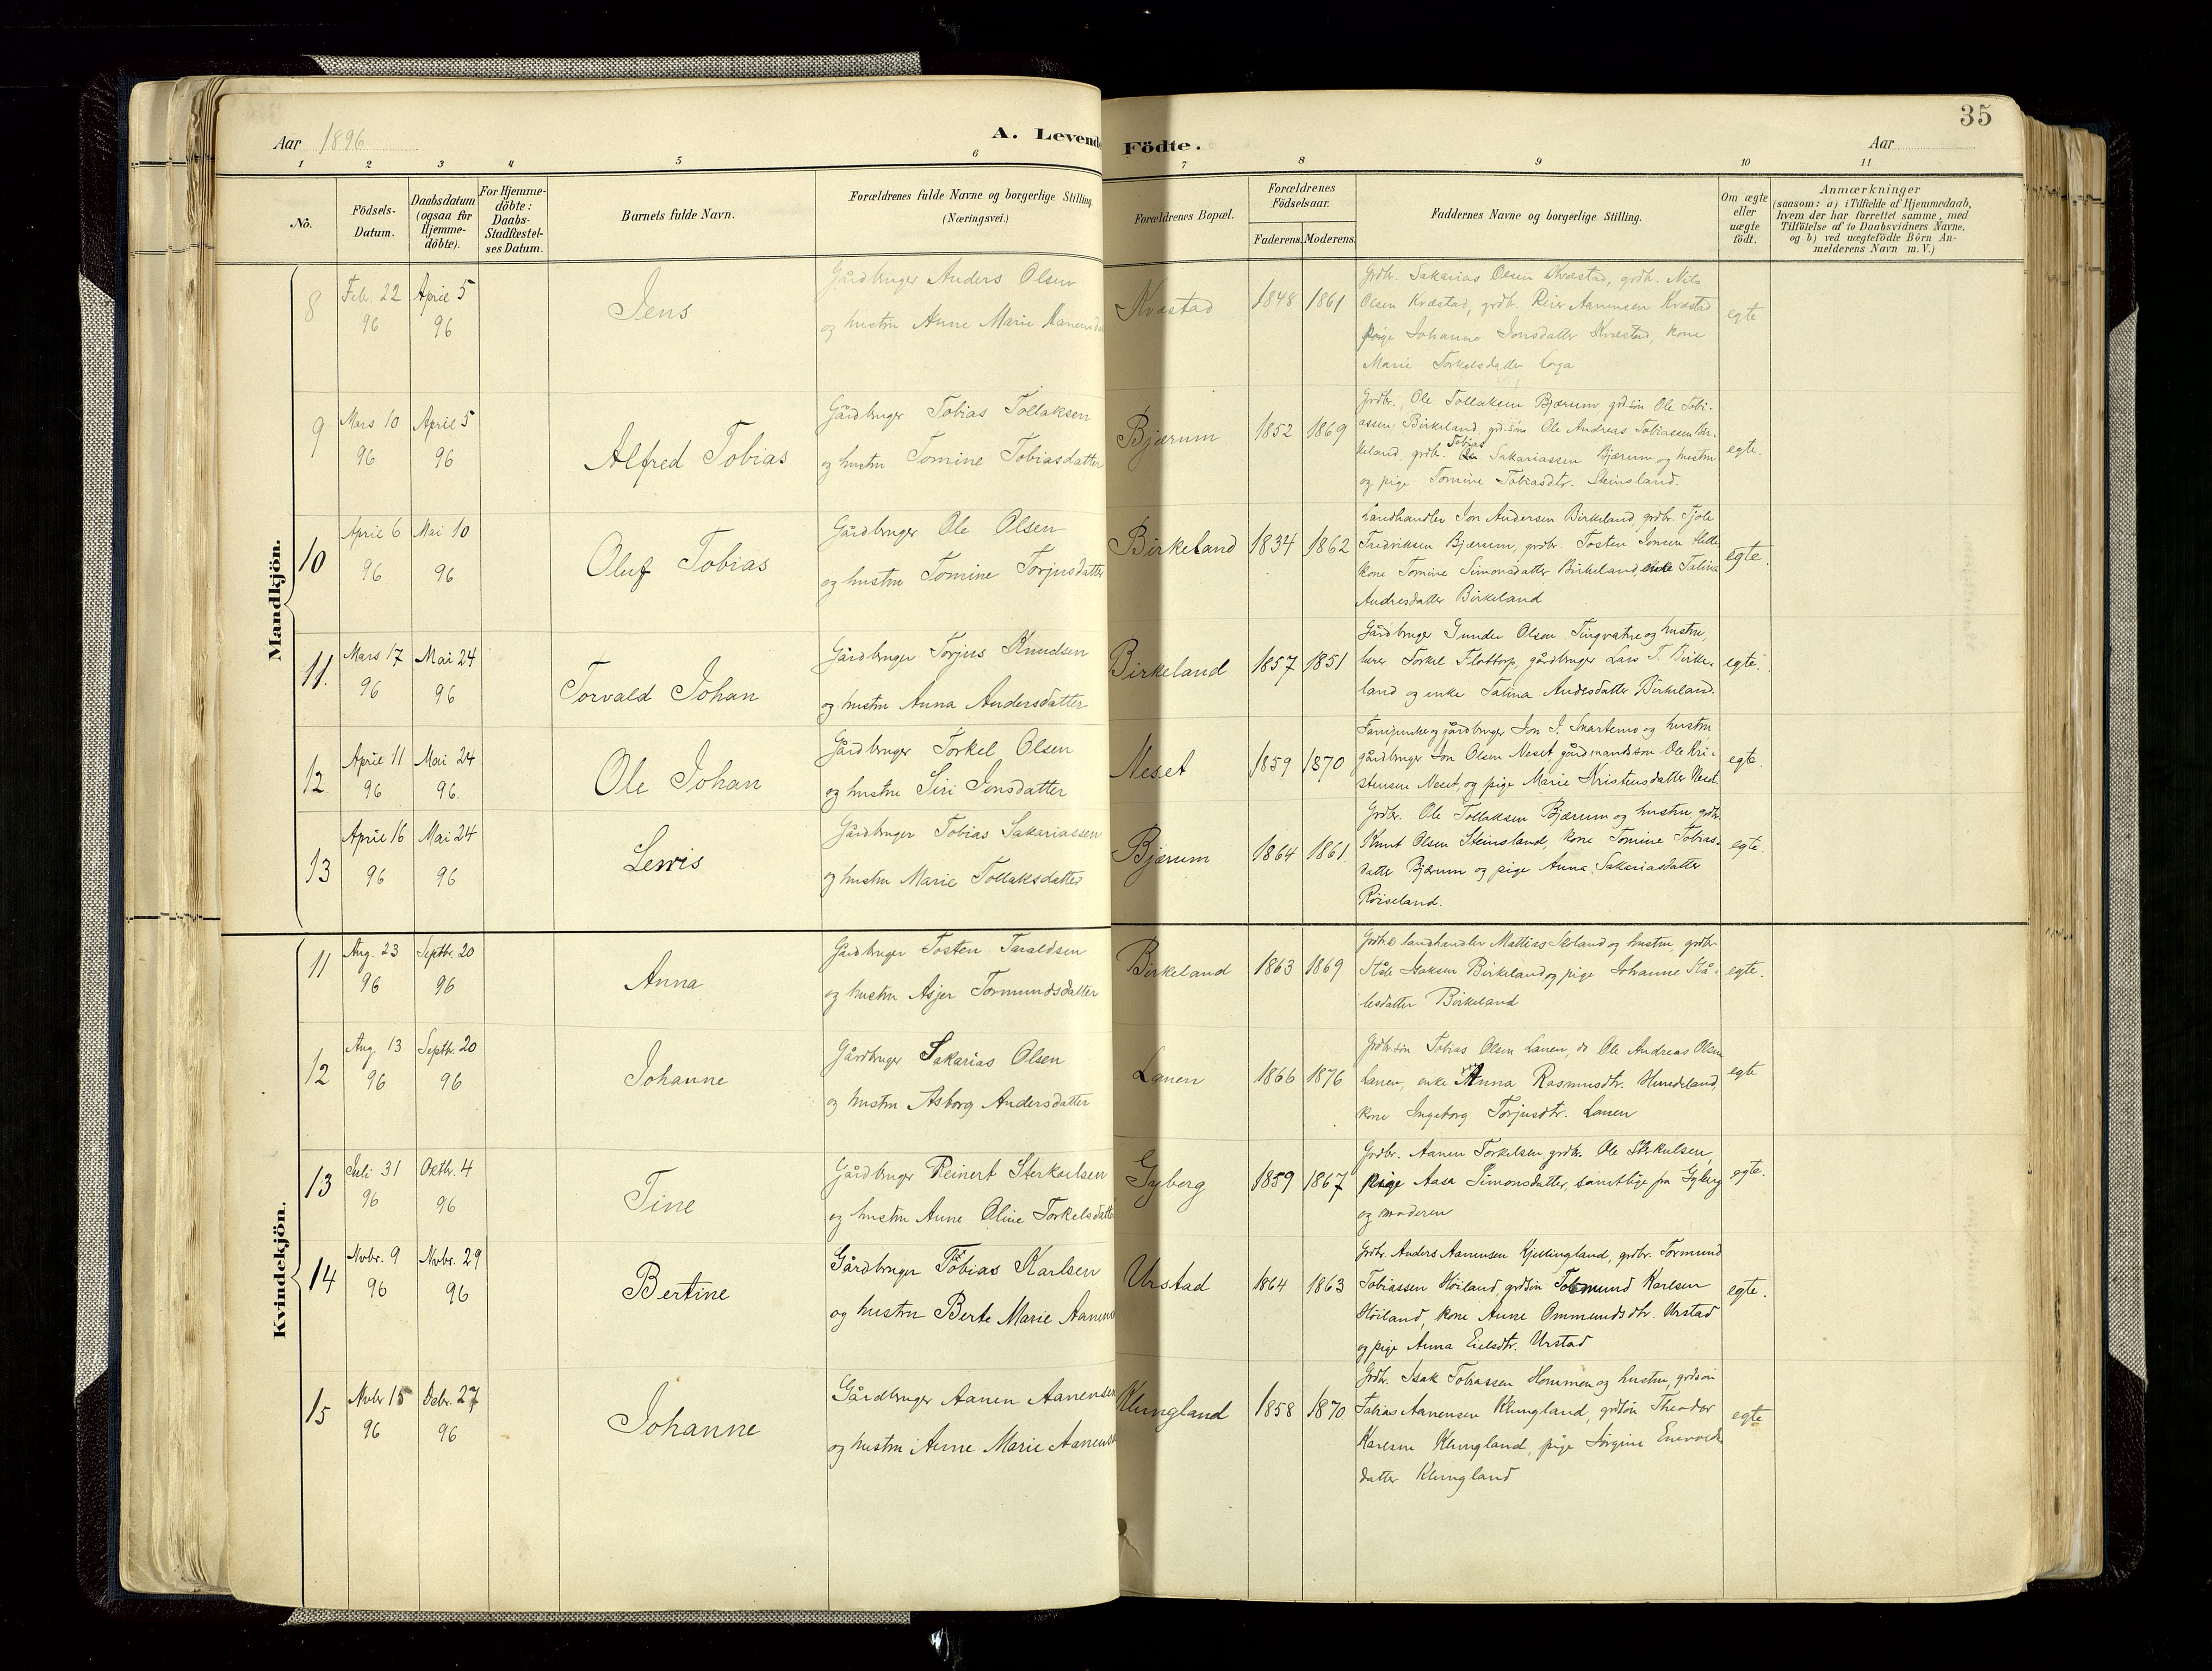 35
Aar 1896
A. Levende Födte.
Aar
1 2 3 4 5 6 7 8 9 10 11
No.
Födsels-Datum.
Daabsdatum (ogsaa for Hjemme-döbte).
For Hjemme-döbte: Daabs-Stadfæstel-ses Datum.
Barnets fulde Navn.
Forældrenes fulde Navne og borgerlige Stilling.
(Næringsvei.)
Forældrenes Bopæl.
Forældrenes Födselsaar.
Faderens. Moderens.
Faddernes Navne og borgerlige Stilling.
Om ægte eller uægte födt.
Anmærkninger
(saasom: a) i Tilfælde af Hjemmedaab,
hvem der har forrettet samme, med
Tilföielse af to Daabsvidners Navne,
og b) ved uægtefödte Börn An-
melderens Navn m. V.)
Mandkjön.
8 Febr. 22 96 April 5 96 Jens
Gårdbruger Anders Olsen
og hustru Anne Marie
Kvæstad 1848 1861
Grdbr. Sakarias Olsen Kvæstad, grdb. Nils
Olsen Kvæstad, grdb. Reier Aanensen Kvæstad
pige Johanne Jonsdatter Kvæstad, kone
Marie Torkelsdatter Loga
egte
9 Mars 10 96 April 5 96 Alfred Tobias
Gårdbruger Tobias Tollaksen
og hustru Tomine Tobiasdatter
Bjærum 1852 1869
Grdbr. Ole Tollaksen Bjærum, grd.sön Ole Tobi-
assen Birkeland, grd.sön Ole Andreas Tobiassen Bir-
keland, grdb. Tobias Sakariassen Bjærum og hustru
og pige Tomine Tobiasdtr. Steinsland.
egte.
10 April 6 96 Mai 10 96 Oluf Tobias
Gårdbruger Ole Olsen
og hustru Tomine Torjusdatter
Birkeland 1834 1862
Landhandler Jon Andersen Birkeland, grdbr. Tjöle
Fredriksen Bjærum, grdbr. Tosten Jonsen
kone Tomine Simonsdatter Birkeland, enke Talina
Andresdatter Birkeland
egte.
11. Mars 17 96 Mai 24 96 Torvald Johan
Gårdbruger Torjus Knudsen
og hustru Anna Andersdatter
Birkeland 1857 1851
Gårdbruger Gunder Olsen Tingvatne og hustru,
lærer Torkel Flottorp, gårdbruger Lars T. Birke-
land og enke Talina Andresdatter Birkeland.
egte.
12 April 11 96 Mai 24 96. Ole Johan
Gårdbruger Torkel Olsen
og hustru Siri Jonsdatter
Neset 1859 1870
gårdbruger Jon J. Snartemo og hustru
gårdbruger Jon Olsen Neset, gårdmandssön Ole Kri-
stensen Neset, og pige Marie Kristensdatter Neset
egte.
13 April 16 96 Mai 24 96 Lewis
Gårdbruger Tobias Sakariassen
og hustru Marie Tollaksdatter
Bjærum 1864 1861
Grdbr. Ole Tollaksen Bjærum og hustru, grdbr.
Knut Olsen Steinsland, kone Tomine Tobias-
datter Bjærum og pige Anna Sakariasdatter
Röiseland.
egte.
Kvindekjön.
11 Aug. 23 96 Septbr. 20 96 Anna
Gårdbruger Tosten Taraldsen
og hustru Asjer Tormundsdatter
Birkeland 1863 1869
Grdbr. & landhandler Mattias Skeland og hustru, grdbr.
Ståle Isaksen Birkeland og pige Johanne Stå-
lesdatter Birkeland
egte.
12 Aug. 13 96 Septbr. 20 96 Johanne
Gårdbruger Sakarias Olsen
og hustru Asborg Andersdatter
Lanen 1866 1876
Grdbr.sön Tobias Olsen Lanen, do Ole Andreas Olsen
Lanen, enke Anna Rasmusdtr. Hunedeland,
kone Ingeborg Torjusdtr. Lanen
egte
13 Juli 31 96 Oktbr. 4 96 Tine
Gårdbruger Reinert Sterkulsen
og hustru Anne Oline Torkelsdatter
Gyberg 1859 1867
Grdbr. Aanen Torkelsen grdb. Ole Sterkulsen,
pige Aasa Simonsdatter, samtlige fra Gyberg
og moderen
egte.
14 Novbr. 9 96 Novbr. 29 96 Bertine
Gårdbruger Tobias Karlsen
og hustru Berte Marie
Urstad 1864 1863
Grdbr. Anders Aanensen Kjellingland, grdbr. Tormund
Tobiassen Höiland, grdsön Tormund Karlsen
Höiland, kone Anne Ommundsdtr. Urstad
og pige Anna Eielsdtr. Urstad
egte.
15 Novbr 15 96 Debr. 27 96 Johanne
Gårdbruger Aanen Aanensen
og hustru Anne Marie
Klungland 1858 1870
Grdbr. Isak Tobiassen Hommen og hustru, grdsön
Tobias Aanensen Klungland, grdsön Theodor
Karlsen Klungland, pige Jörgine
datter Klungland
egte